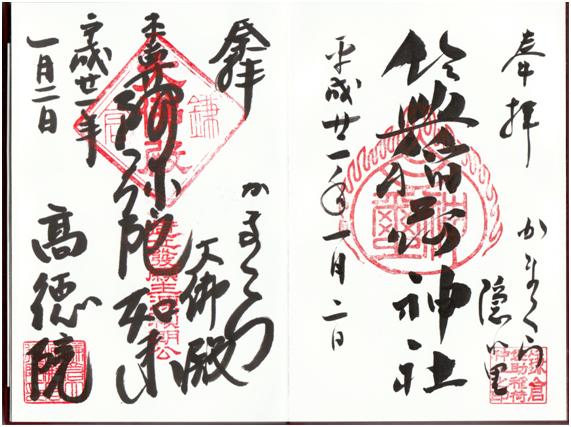 奉拝
かまくら
隠れ里
鎌倉
佐助稲荷
神社
佐助稲荷神社
平成廿一年一月二日
奉拝
かまくら
大佛殿
本尊阿弥陀如来
平成廿一年
一月二日
高徳院